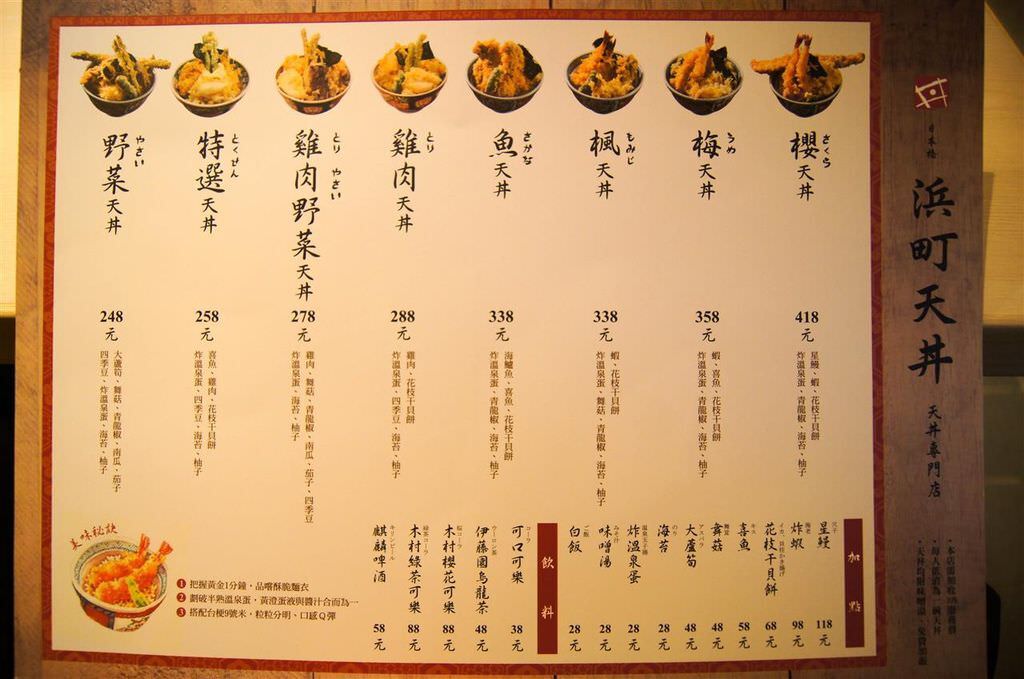 日本橋
浜町天丼
天丼專門店
・本店須加收10%服務費
・每人低消為一碗天丼
・天丼均附味噌湯、免費加飯
さくら
櫻天丼
418元
星鰻、蝦、花枝干貝餅
炸溫泉蛋、青龍椒、海苔、柚子
うめ
梅天丼
358元
蝦、喜魚、花枝干貝餅
炸溫泉蛋、青龍椒、海苔、柚子
もみじ
楓天丼
338元
蝦、花枝干貝餅
炸溫泉蛋、舞菇、青龍椒、海苔、柚子
さかな
魚天丼
338元
海鱺魚、喜魚、花枝干貝餅
炸溫泉蛋、青龍椒、海苔、柚子
とり
雞肉天丼
288元
雞肉、花枝干貝餅
炸溫泉蛋、四季豆、海苔、柚子
とり やさい
雞肉野菜天丼
278元
雞肉、舞菇、青龍椒、南瓜、茄子、四季豆
炸溫泉蛋、海苔、柚子
とくせん
特選天丼
258元
喜魚、雞肉、花枝干貝餅
炸溫泉蛋、四季豆、海苔、柚子
やさい
野菜天丼
248元
大蘆筍、舞菇、青龍椒、南瓜、茄子
四季豆、炸溫泉蛋、海苔、柚子
加點
穴子
星鰻 118元
海老
炸蝦 98元
イカ、貝柱かき揚げ
花枝干貝餅 68元
キス
喜魚 58元
舞茸
舞菇 48元
アスパラ
大蘆筍 48元
のり
海苔 28元
温泉玉子揚
炸溫泉蛋 28元
みそ汁
味噌湯 28元
ご飯
白飯 28元
飲料
コーラ
可口可樂 38元
ウーロン茶
伊藤園烏龍茶 48元
桜コーラ
木村櫻花可樂 88元
緑茶コーラ
木村綠茶可樂 88元
キリンビール
麒麟啤酒 58元
美味秘訣
1 把握黃金1分鐘，品嚐酥脆麵衣
2 劃破半熟溫泉蛋，黃澄蛋液與醬汁合而為一
3 搭配台梗9號米，粒粒分明、口感Q彈